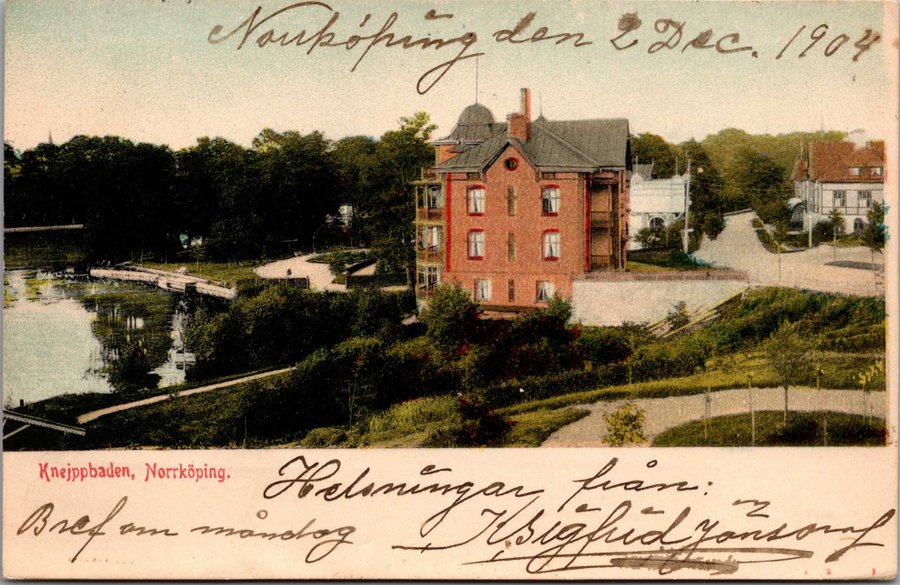 Norrköping den 2 Dec. 1904
Knejppbaden, Norrköping.
Helsningar från:
Bref om måndag
K Sigfrid Jönsson